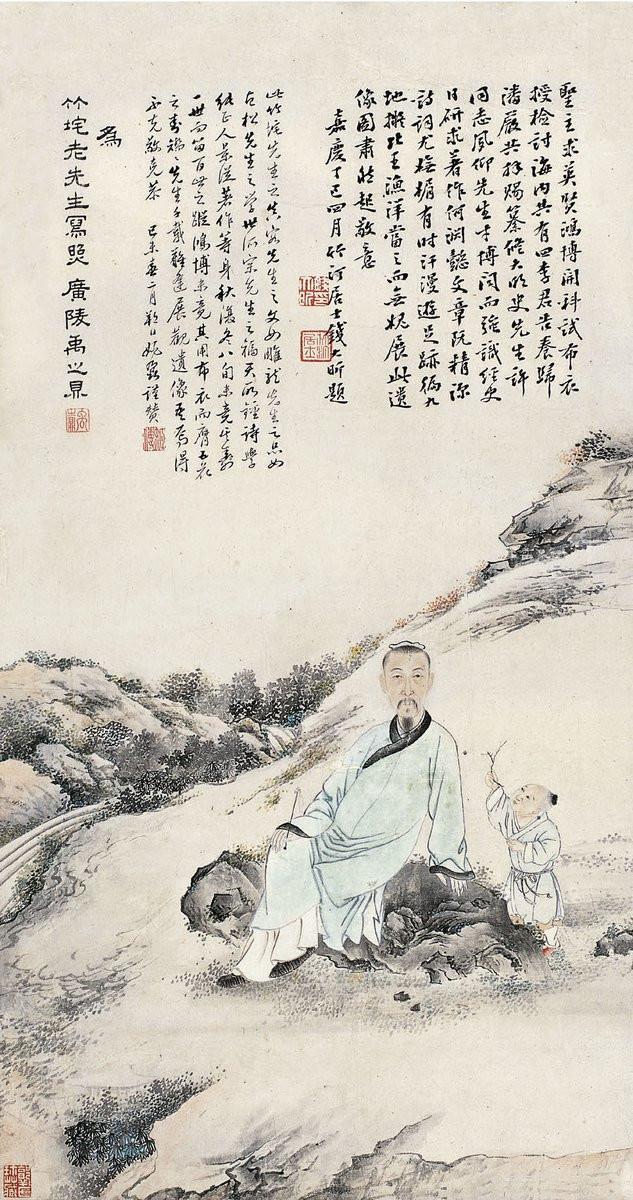 聖主求英賢鴻博開科試布衣
授檢討海內共有四李君告養歸
潘嚴共纂修大明史先生許
同志夙仰先生才博聞而強識經史
日研求著作何淵懿文章既精深
詩詞尤有時汗漫遊足跡徧九
地擬比王漁洋當之而無媿展此遺
像圖肅然起敬意
嘉慶丁巳四月竹汀居士錢大昕題
此竹垞先生之真容先生之文如雕龍先生之品如
古松先生之學世所宗先生之福天所鍾詩學
經正人景從著作等身秋復冬八旬未竟
一世而留百世之蹤鴻博未竟其用布衣而膺五花
之封先生千載難逢展觀遺像焉得
不克敬克恭 己未春二月朔日姚鼐謹贊
為
竹垞老先生寫照 廣陵禹之鼎